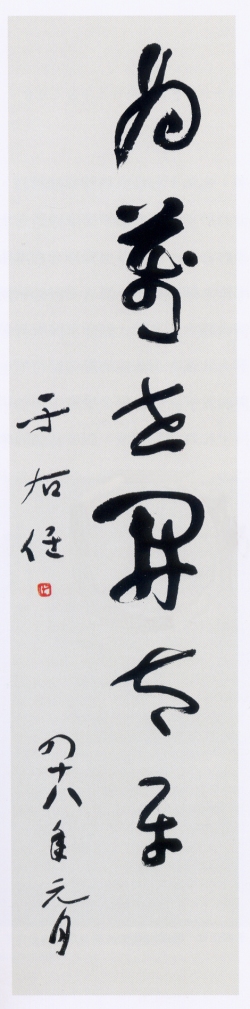 為萬世開太平
于右任
四十八年元月